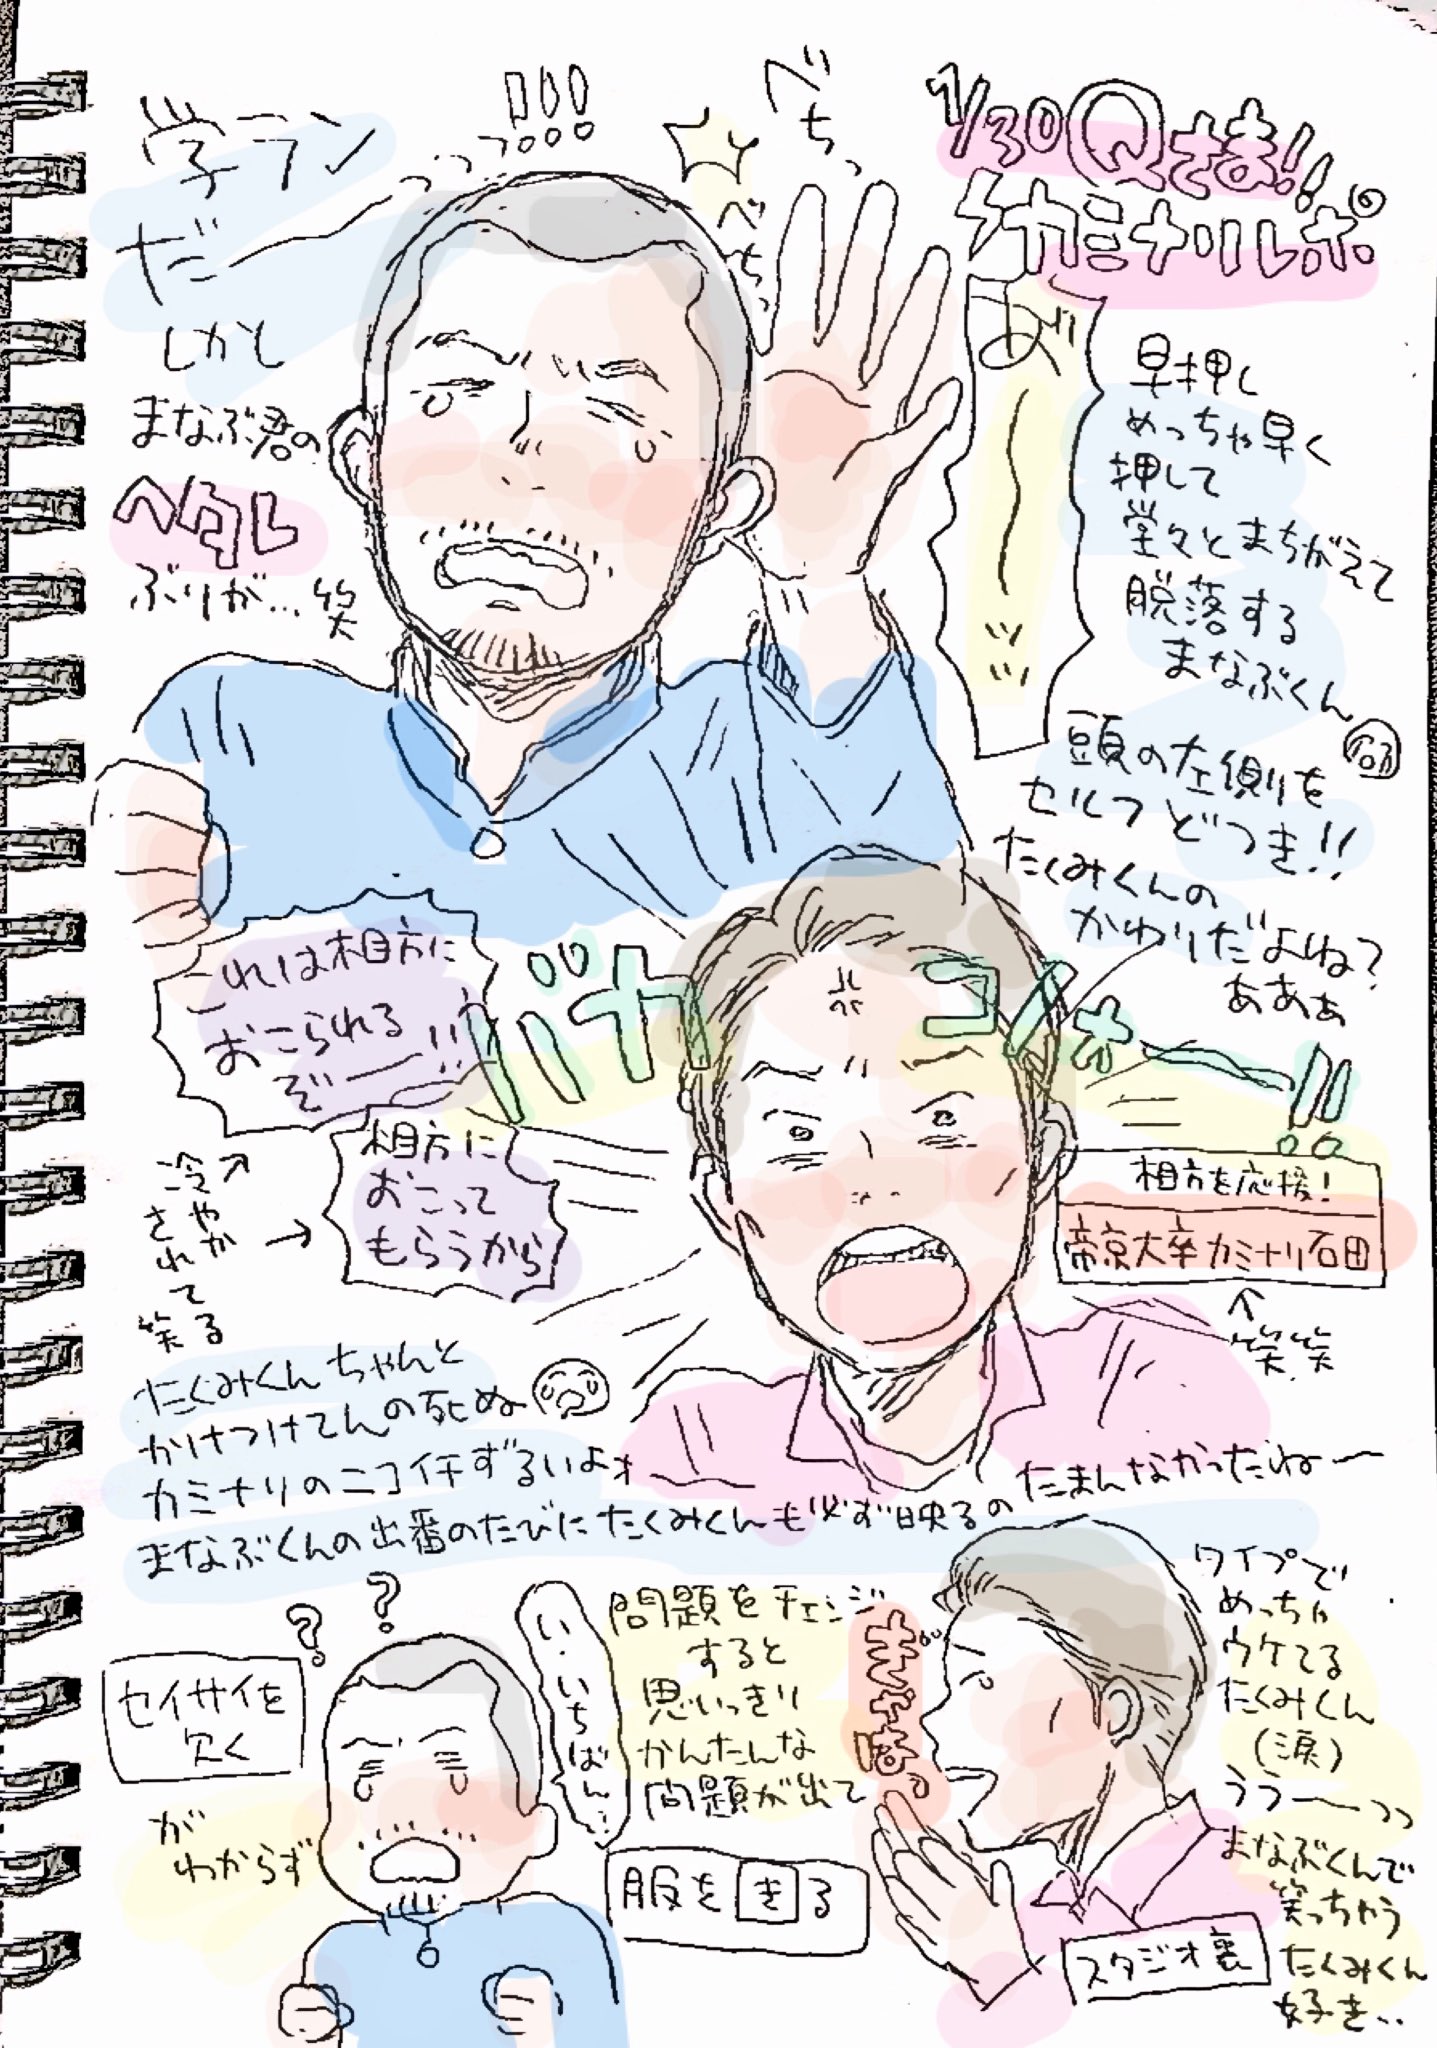 1/30Qさま!!
カミナリレポ
べちっ
べちっ
学ラン
だーっっ!!!
しかし
まなぶ君の
ヘタレ
ぶりが…笑
あ゛〜〜ッッ
早押し
めっちゃ早く
押して
堂々とまちがえて
脱落する
まなぶくん
頭の左側を
セルフどつき!!
たくみくんの
かわりだよね?
あぁぁ
これは相方に
おこられる
ぞー!!
バカコノォー!!
相方に
おこって
もらうから
冷やか
されて
る
笑
相方を応援!
帝京大卒カミナリ石田
笑笑
たくみくんちゃんと
かけつけてんの死ぬ
カミナリのニコイチずるいよォ
まなぶくんの出番のたびにたくみくんも必ず映るのたまんなかったね〜
??
セイサイを
欠く
が
わからず
い・いちばん…
問題をチェンジ
すると
思いっきり
かんたんな
問題が出て
服をきる
ぎゃはっ
タイプで
めっちゃ
ウケてる
たくみくん
(涙)
うぅーっっ
まなぶくんで
笑っちゃう
たくみくん
好き..
スタジオ裏